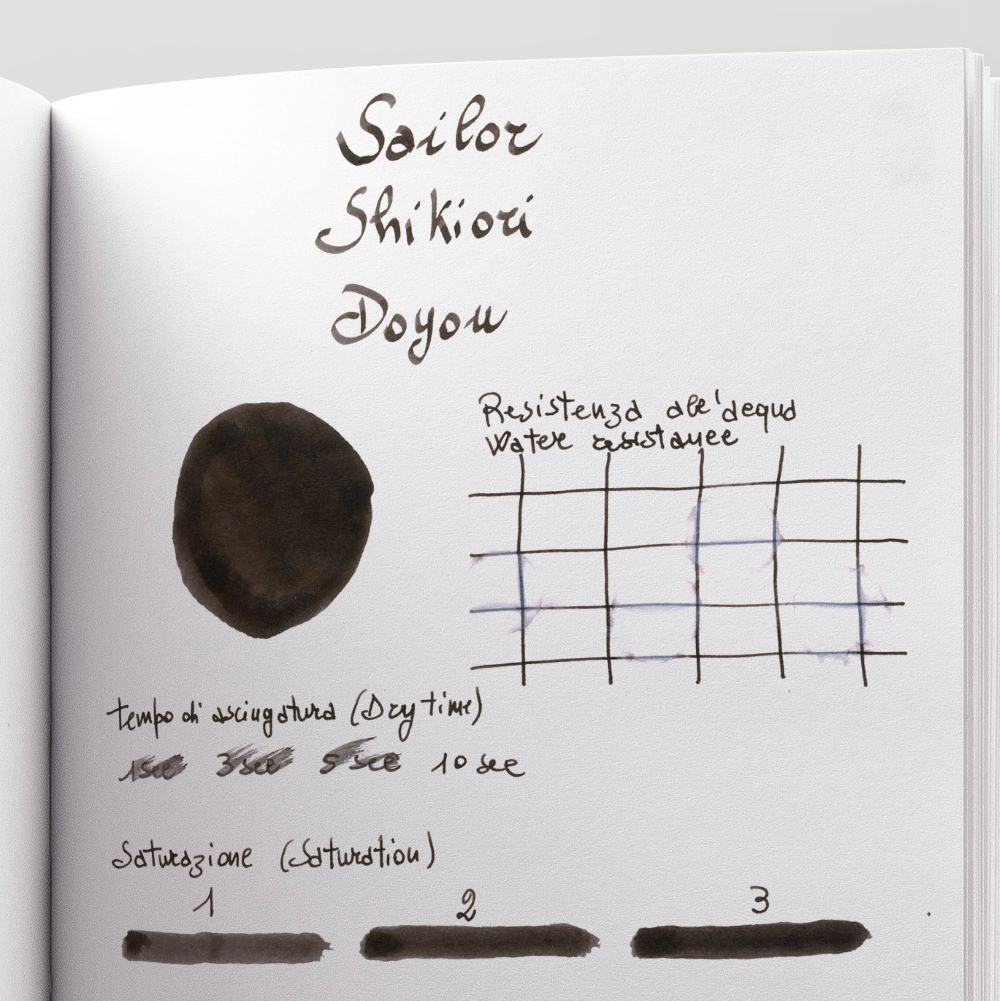 Sailor
Shikiori
Doyou
Resistenza all'acqua
Water resistance
tempo di asciugatura (Dry time)
1 sec 3 sec 5 sec 10 sec
Saturazione (Saturation)
1 2 3